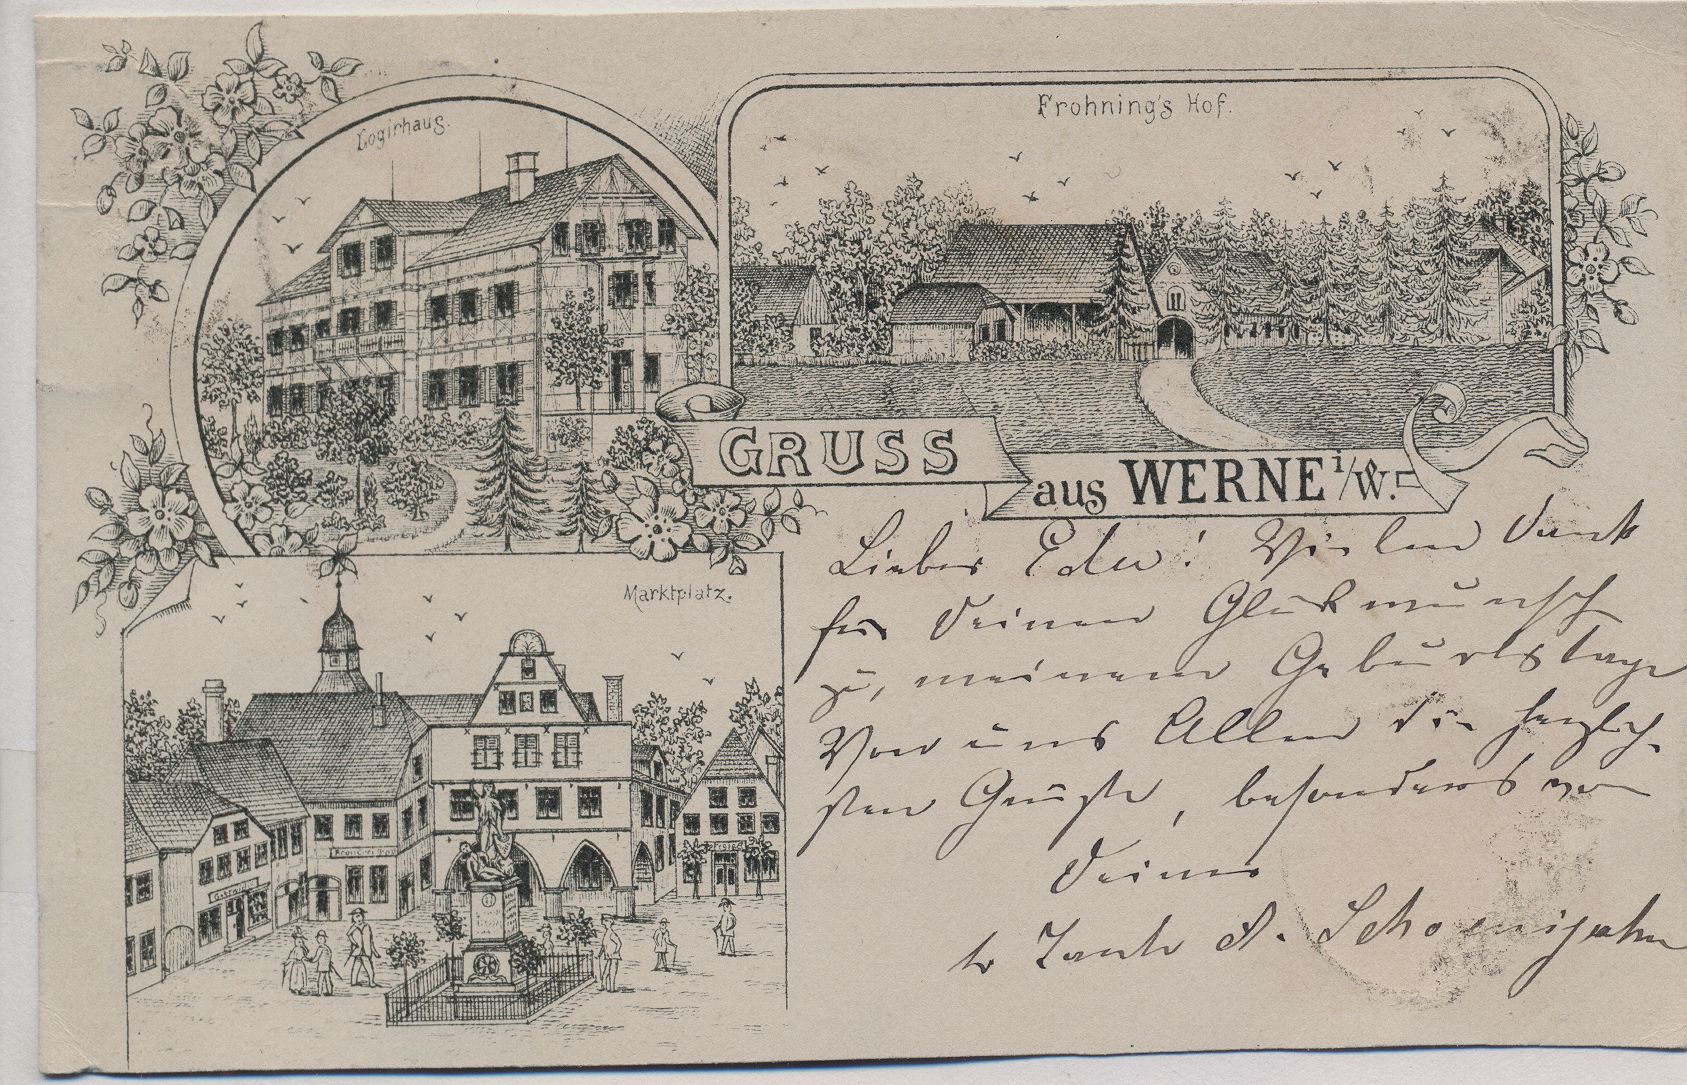 Logirhaus.
Frohning's Hof.
GRUSS
aus WERNE i/W.
Marktplatz.
Lieber Edu! Vielen Dank
für Deinen Glückwunsch
zu meinem Geburtstage
Von uns Allen die herzlich-
sten Grüße, besonders von
Deiner
Tante A.